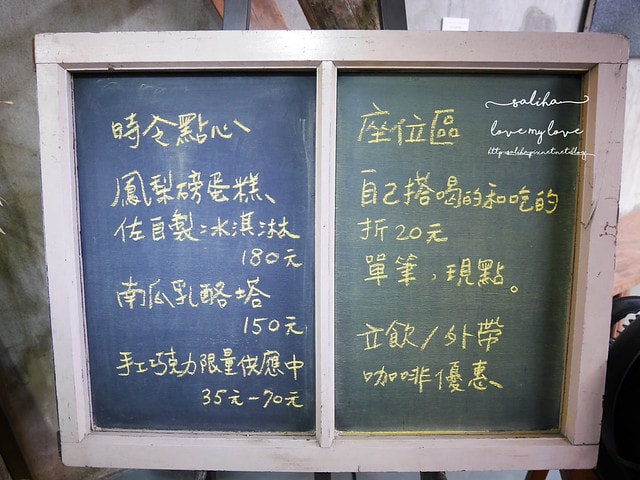 時令點心
鳳梨磅蛋糕、
佐自製冰淇淋
180元
南瓜乳酪塔
150元
手工巧克力限量供應中
35元-70元
座位區
自己搭喝的和吃的
折20元
單筆,現點。
立飲/外帶
咖啡優惠
saliha
love my love